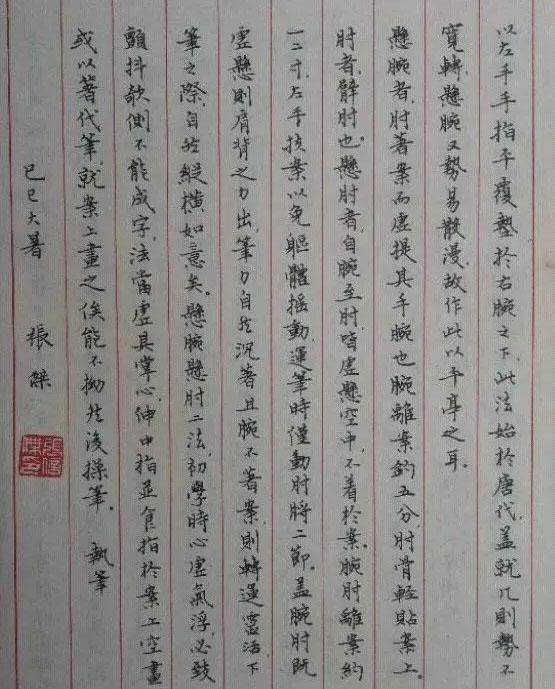 以左手手指平覆墊於右腕之下,此法始於唐代,蓋就几則勢不
寬轉,懸腕又勢易散漫,故作此以平亭之耳。
懸腕者,肘著案而虛提其手腕也腕離案約五分,肘骨輕貼案上。
肘者,臂肘也。懸肘者,自腕至肘,皆虛懸空中,不着於案。腕肘離案約
一二寸,左手按案以免軀體搖動,運筆時僅動肘將二節。蓋腕肘既
虛懸則肩背之力出,筆力自然沉著且腕不著案,則轉運靈活下
筆之際,自然縱橫如意矣。懸腕懸肘二法,初學時心虛氣浮,必致
顫抖欹側不能成字,法當虛其掌心,伸中指並食指於案上空畫
或以箸代筆,就案上畫之俟能不拗然後操筆。 執筆
己巳大暑 張傑